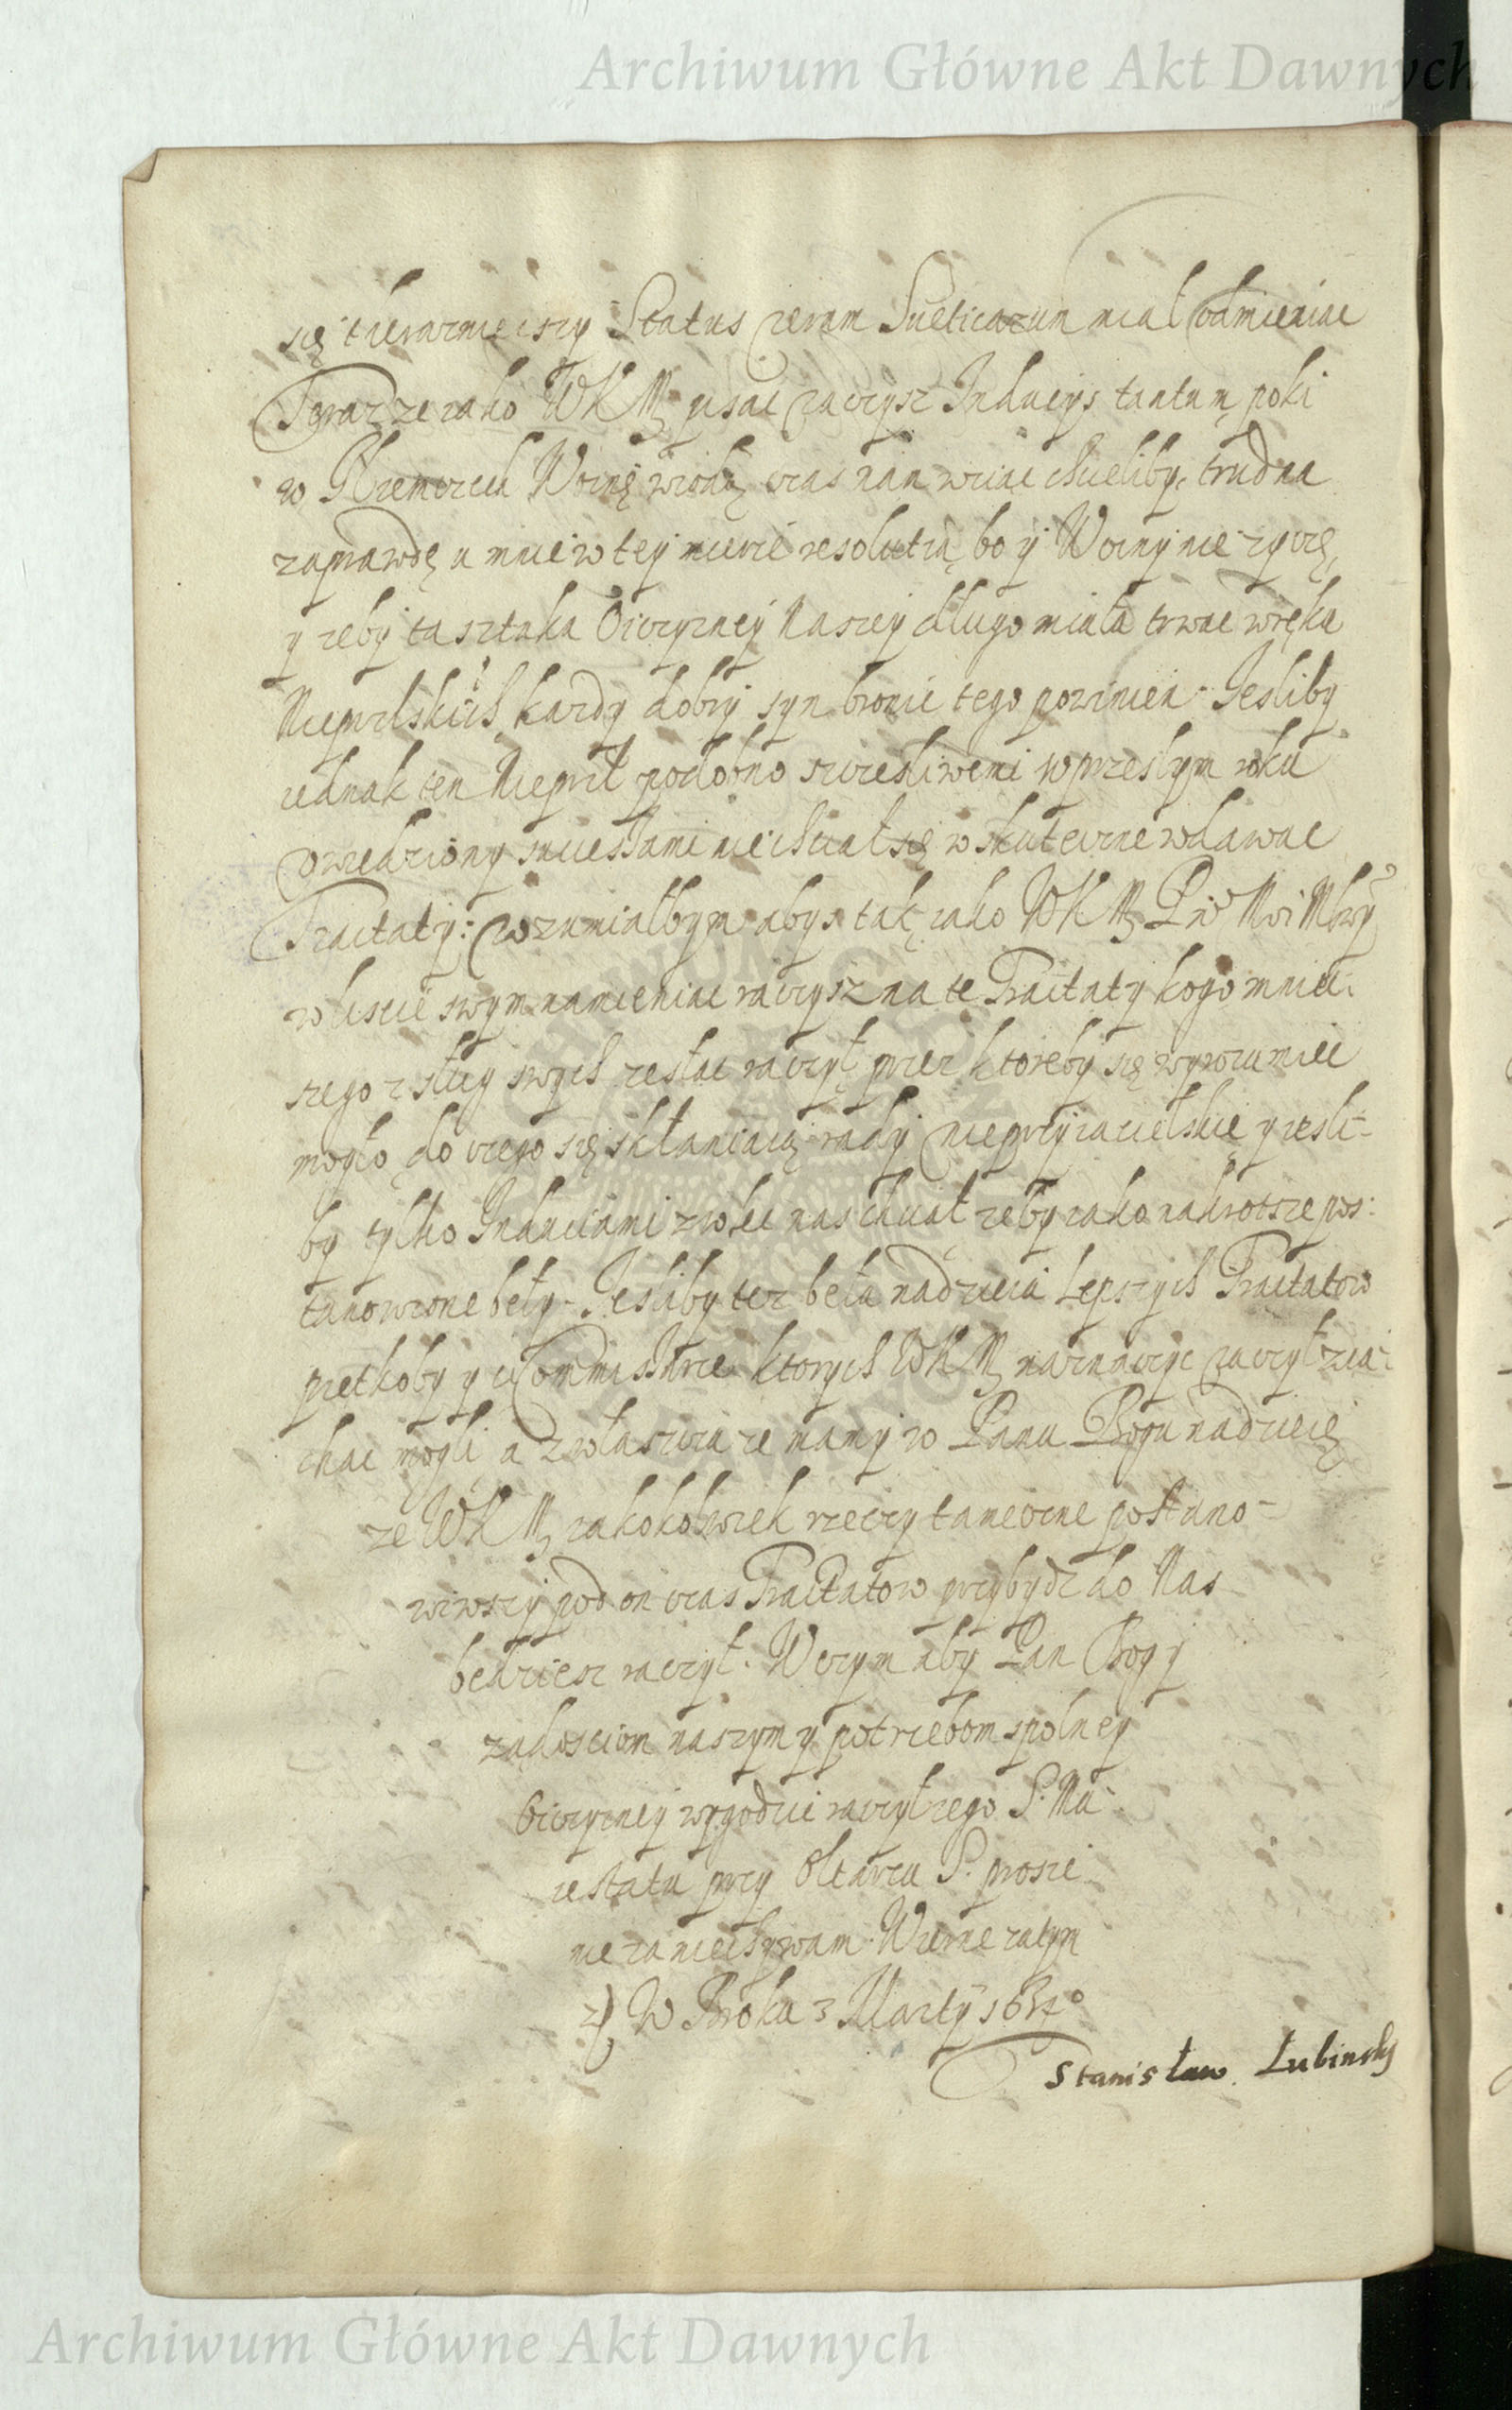 Archiwum Główne Akt Dawnych
się therazniejszy Status rerum Sueticarum miał odmieniac
Teraz ze iako WKM pisac raczysz Inducijs tantum poki
w Niemczech Woinę wiodą czas nam wziac chcieliby, trudna
zaprawdę u mnie w tey mierze resolutia, bo y Woiny nie zyczę,
y zeby ta sztuka Oiczyzney Naszey długo miała trwac w ręku
Nieprzlskich kazdy dobry syn bronic tego powinien. Jesliby
iednak ten Nieprzl podobno szczesliwemi w przeszłym roku
uwiedziony successami nie chciał się w skuteczne wdawac
Tractaty: rozumiałbym abys tak iako WKM P. N. Mci Mwy
w liscie swym namieniac raczysz na te Tractaty kogo mniei:
szego z sług swych zesłac raczył przez ktoreby się wyrozumiec
mogło do czego się skłaniaią rady nieprzyiacielskie y iesli-
by tylko Induciami zwlec nas chciał zeby iako nakrotsze pos:
tanowione beły. Jesliby tez beła nadzieia Lepszych Tractatow
prętkoby y ci Commissarze ktorych WKM naznaczyc raczył zia:
chac mogli a zwłaszcza ze mamy w Panu Bogu nadzieię
ze WKM iakokolwiek rzeczy tameczne postano-
wiwszy pod on czas Tractatow przybydz do Nas
będziesz raczył. W czym aby Pan Bog y
ządosciom naszym y potrzebom spolney
Oiczyzney wygodzic raczył iego S. Ma
iestatu przy Ołtarzu S. prosic
nie zaniechywam. Wierne zatym
etc. W Broku 3 Martij 1634°
Stanisław Łubinsky
Archiwum Główne Akt Dawnych